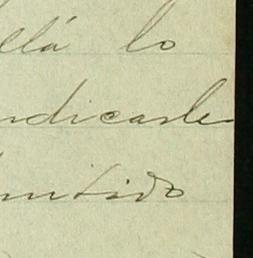 allá lo
ndicarle
mitido